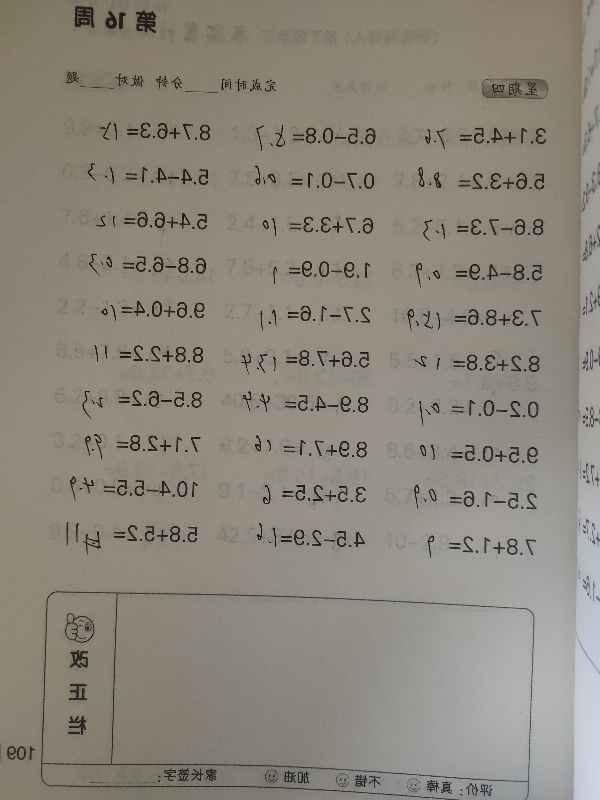 第 16 周
星期四 完成时间____分钟 做对____题
3.1+4.5=7.6 6.5−0.8=5.7 8.7+6.3=15
5.6+3.2=8.8 0.7−0.1=0.6 5.4−4.1=1.3
8.6−7.3=1.3 6.7+3.3=10 5.4+6.6=12
5.8−4.9=0.9 1.9−0.9=1 6.8−6.5=0.3
7.3+8.6=15.9 2.7−1.6=1.1 9.6+0.4=10
8.2+3.8=12 5.6+7.8=13.4 8.8+2.2=11
0.2−0.1=0.1 8.9−4.5=4.4 8.5−6.2=2.3
9.5+0.5=10 8.9+7.1=16 7.1+2.8=9.9
2.5−1.6=0.9 3.5+2.5=6 10.4−5.5=4.9
7.8+1.2=9 4.5−2.9=1.6 5.8+5.2=11
改正栏
评价：真棒 不错 加油 家长签字：________
109